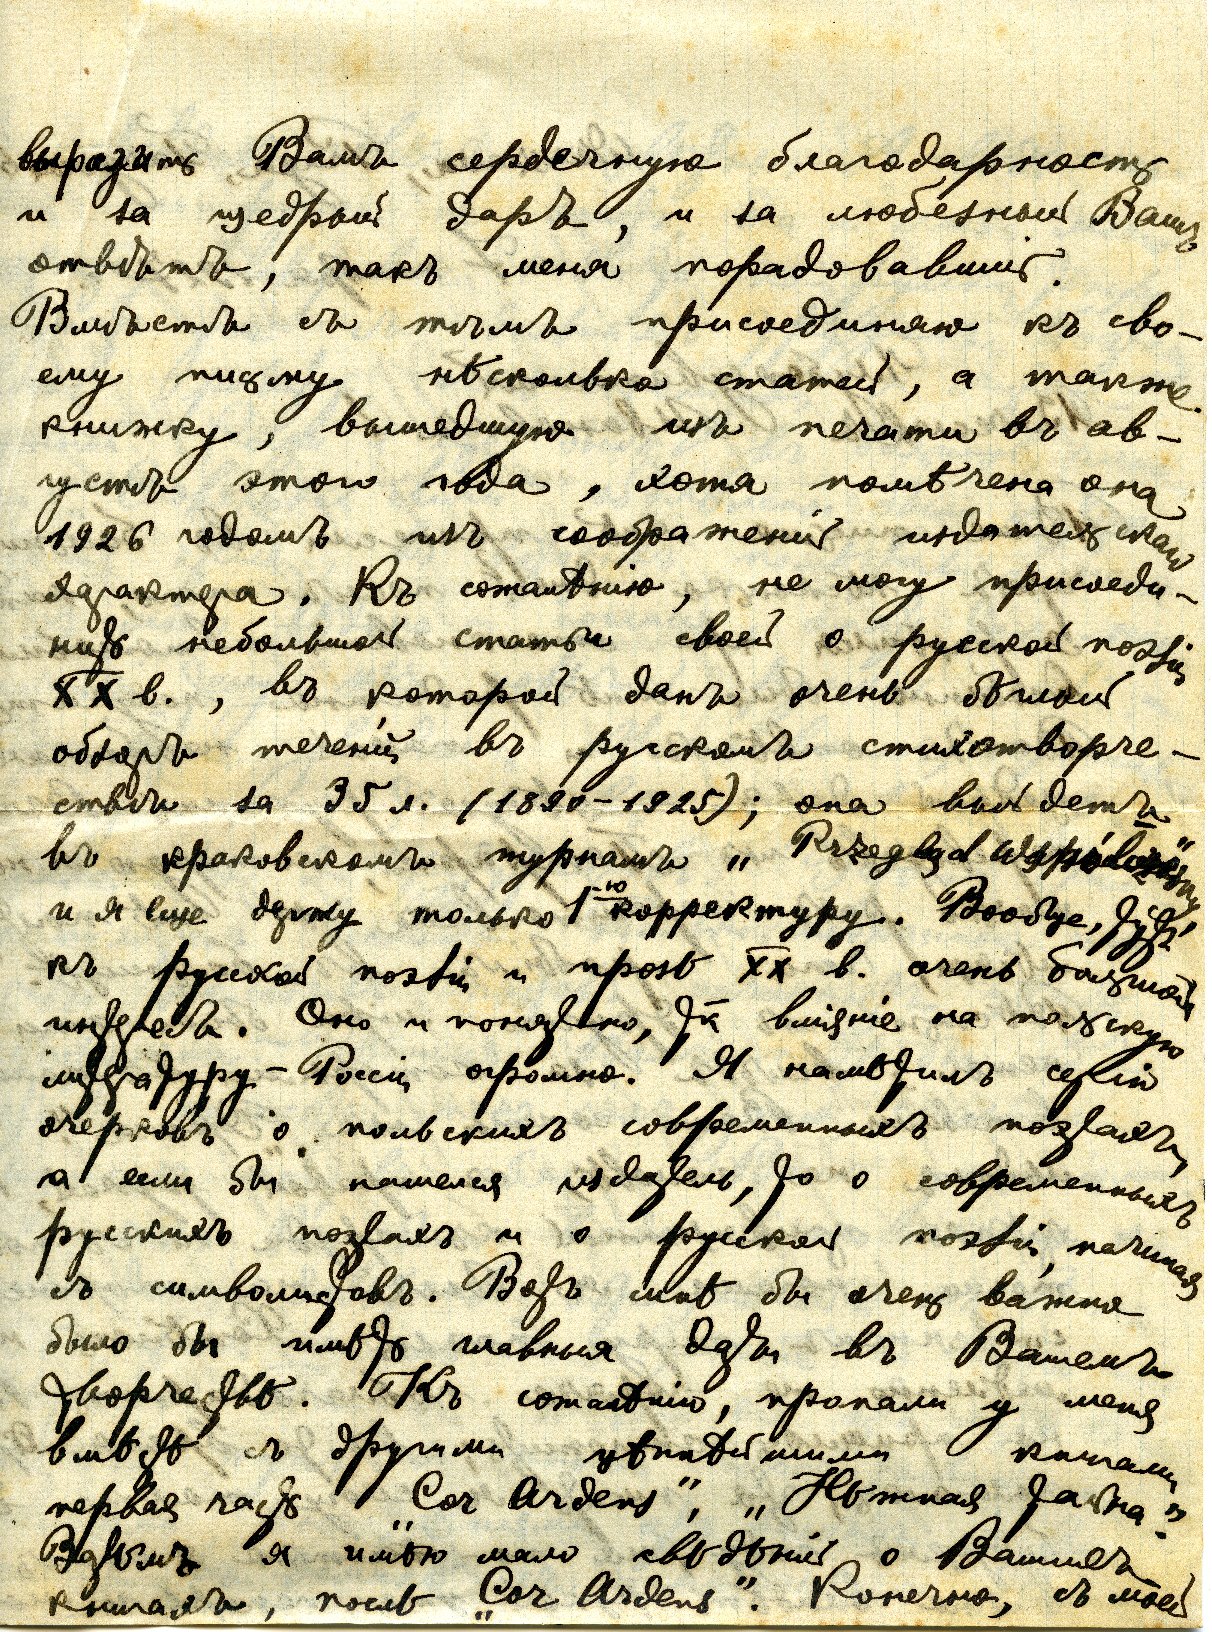 выразить Вамъ сердечную благодарность
и за щедрый даръ, и за любезный Вашъ
отвѣтъ, такъ меня порадовавшій.
Вмѣстѣ съ тѣмъ присоединяю къ сво-
ему письму нѣсколько статей, а также
книжку, вышедшую изъ печати въ ав-
густѣ этого года, хотя помѣчена она
1926 годомъ изъ соображеній издательскаго
характера. Къ сожалѣнію, не могу присоеди-
нить небольшой статьи своей о русской поэзіи
XX в., въ которой данъ очень бѣглый
обзоръ теченій въ русскомъ стихотворче-
ствѣ за 35 л. (1890-1925); она выйдетъ
въ краковскомъ журналѣ „Przegląd Współczesny"
и я еще держу только 1-ю корректуру. Вообще, тутъ
къ русской поэзіи и прозѣ XX в. очень большой
интересъ. Оно и понятно, тк вліяніе на польскую
литературу Россіи огромно. Я намѣтилъ серію
очерковъ о польскихъ современныхъ поэтахъ,
а если бы нашелся издатель, то о современныхъ
русскихъ поэтахъ и о русской поэзіи, начиная
съ символистовъ. Вотъ мнѣ бы очень важно
было бы имѣть главныя даты въ Вашемъ
творчествѣ. Къ сожалѣнію, пропали у меня
вмѣстѣ съ другими цѣннѣйшими книгами
первая часть „Cor Ardens", „Нѣжная Тайна".
Затѣмъ я имѣю мало свѣдѣній о Вашихъ
книгахъ, послѣ „Cor Ardens". Конечно, съ моей